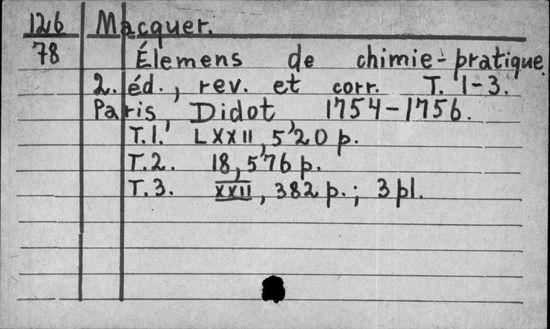 126 Macquer.
78 Élemens de chimie-pratique.
2. éd., rev. et corr. T. 1-3.
Paris, Didot, 1754-1756.
T.1. LXXII, 520 p.
T.2. 18, 576 p.
T.3. XXII, 382 p.; 3 pl.